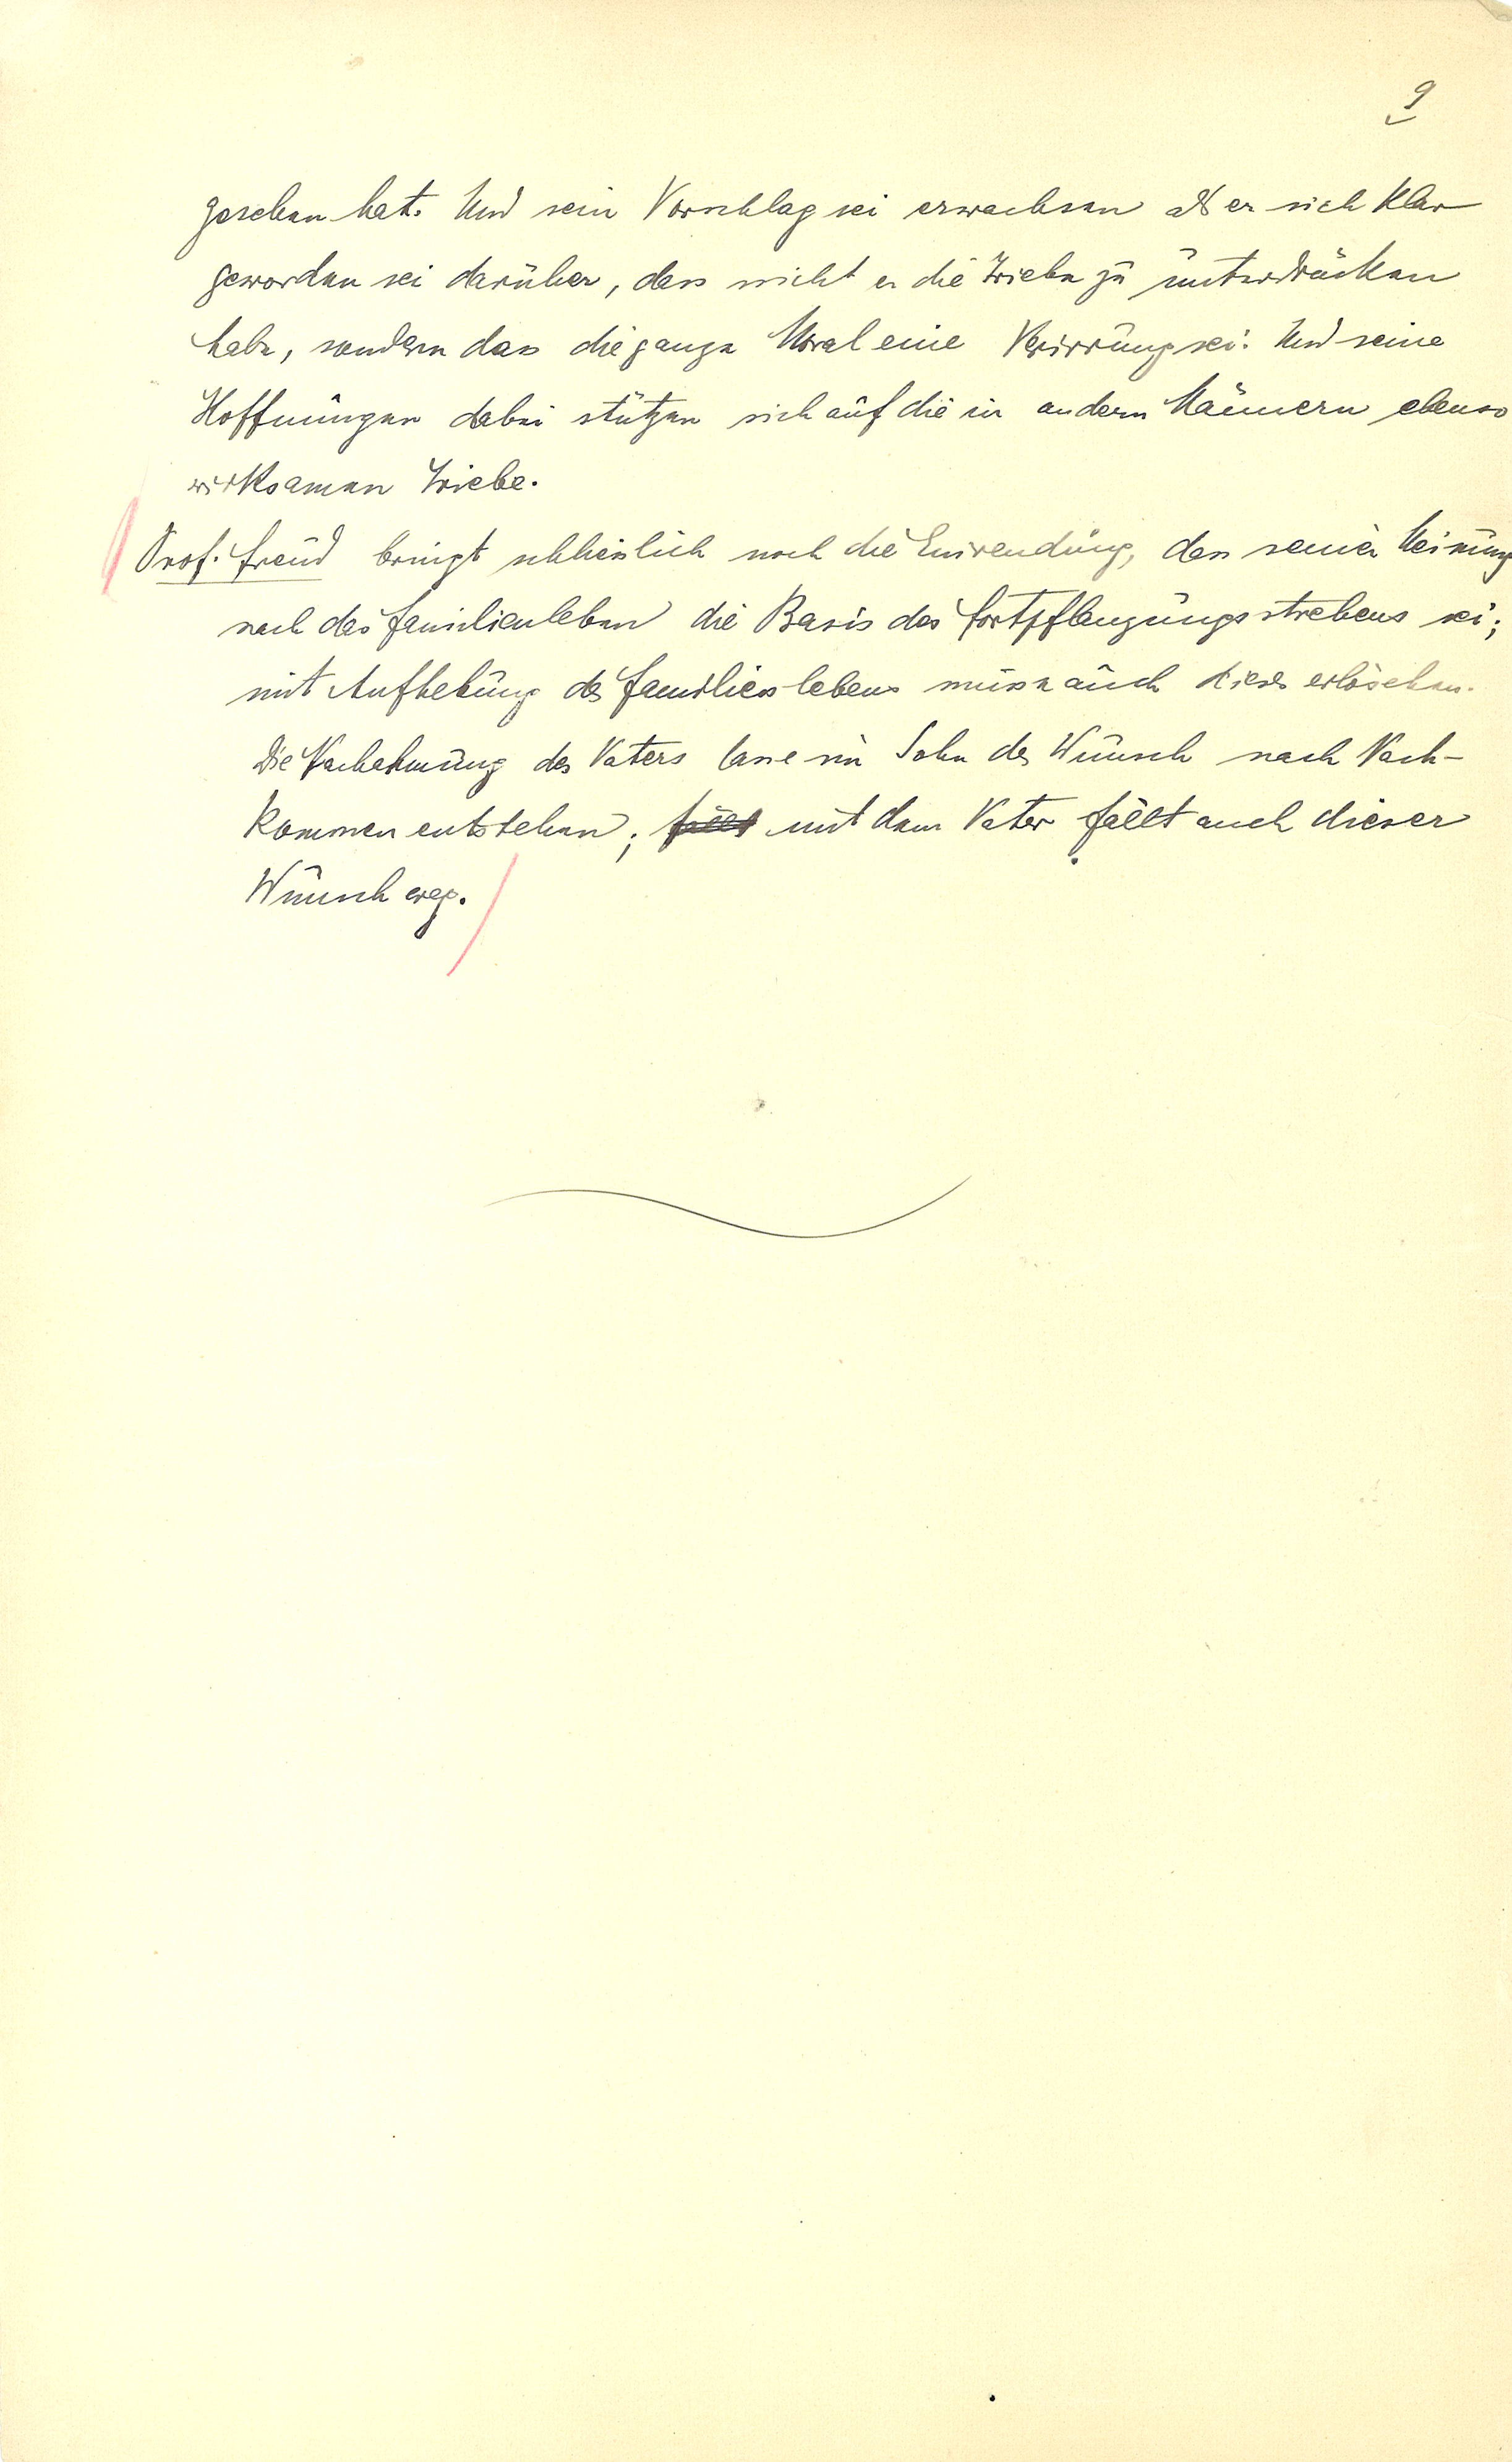 9
gesehen hat. Und sein Vorschlag sei erwachsen als er sich klar
geworden sei darüber, dass nicht er die Triebe zu unterdrücken
habe, sondern dass die ganze Moral eine Verirrung sei. Und seine
Hoffnungen dabei stützen sich auf die in andern Männern ebenso
wirksamen Triebe.
Prof. Freud bringt schliesslich noch die Einwendung, dass seiner Meinung
nach das Familienleben die Basis des Fortpflanzungsstrebens sei;
mit Aufhebung des Familienlebens müsse auch dieses erlöschen.
Die Nachahmung des Vaters lasse im Sohn den Wunsch nach Nach-
kommen entstehen; fällt mit dem Vater fällt auch dieser
Wunsch weg.